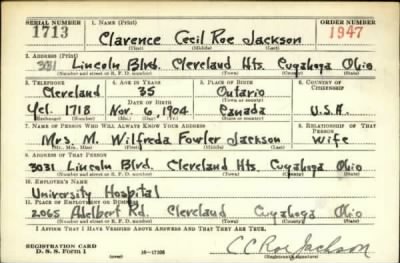 SERIAL NUMBER 1. NAME (Print) ORDER NUMBER
1713 Clarence Cecil Roe Jackson 1947
(First) (Middle) (Last)
2. ADDRESS (Print)
331 Lincoln Blvd. Cleveland Hts. Cuyahoga Ohio
(Number and street or R. F. D. number) (Town) (County) (State)
3. TELEPHONE 4. AGE IN YEARS 5. PLACE OF BIRTH 6. COUNTRY OF CITIZENSHIP
Cleveland 35 Ontario
DATE OF BIRTH (Town or county)
Yel. 1718 Nov. 6, 1904 Canada U.S.A.
(Exchange) (Number) (Mo.) (Day) (Yr.) (State or country)
7. NAME OF PERSON WHO WILL ALWAYS KNOW YOUR ADDRESS 8. RELATIONSHIP OF THAT PERSON
Mrs. M. Wilfreda Fowler Jackson Wife
(Mr., Mrs., Miss) (First) (Middle) (Last)
9. ADDRESS OF THAT PERSON
3031 Lincoln Blvd. Cleveland Hts. Cuyahoga Ohio
(Number and street or R. F. D. number) (Town) (County) (State)
10. EMPLOYER'S NAME
University Hospital
11. PLACE OF EMPLOYMENT OR BUSINESS
2065 Adelbert Rd. Cleveland Cuyahoga Ohio
(Number and street or R. F. D. number) (Town) (County) (State)
I AFFIRM THAT I HAVE VERIFIED ABOVE ANSWERS AND THAT THEY ARE TRUE.
REGISTRATION CARD
D. S. S. Form 1 (over) C C Roe Jackson